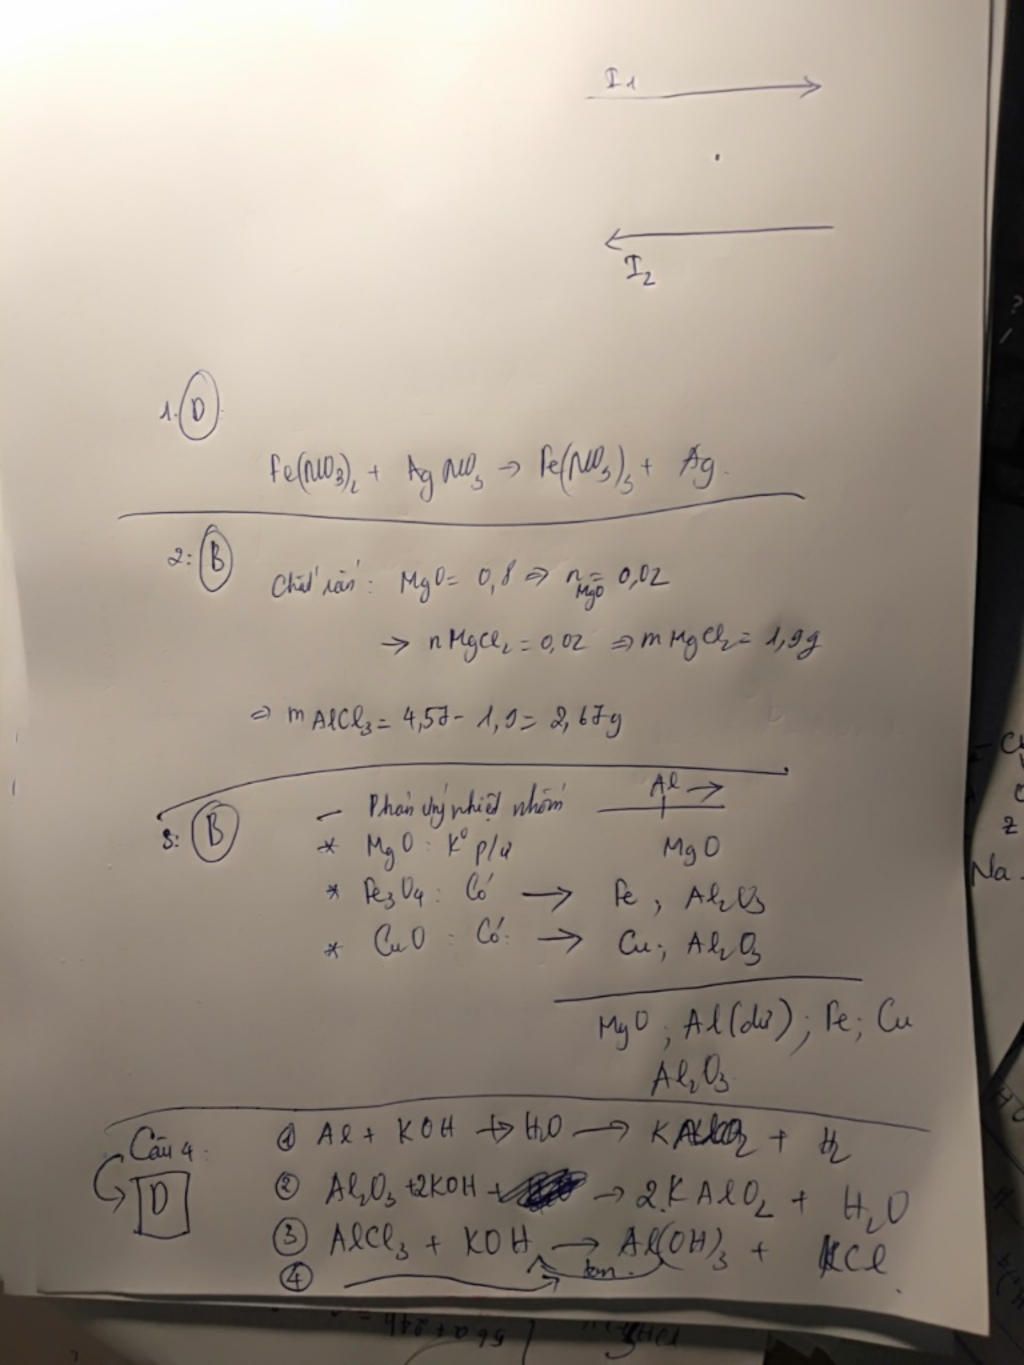 I1
I2
1. D
Fe(NO3)2 + AgNO3 → Fe(NO3)3 + Ag.
2: B
Chất rắn: MgO = 0,8 ⇒ nMgO = 0,02
→ nMgCl2 = 0,02 ⇒ mMgCl2 = 1,9g
⇒ mAlCl3 = 4,57 - 1,9 = 2,67g
3: B
- Phản ứng nhiệt nhôm Al →
* MgO : K° p/ứ MgO
* Fe3O4 : Có → Fe, Al2O3
* CuO : Có. → Cu; Al2O3
MgO; Al(dư); Fe; Cu
Al2O3
Câu 4:
D
① Al + KOH + H2O → KAlO2 + H2
② Al2O3 + 2KOH + → 2.KAlO2 + H2O
③ AlCl3 + KOH → Al(OH)3 + KCl
④ tan.